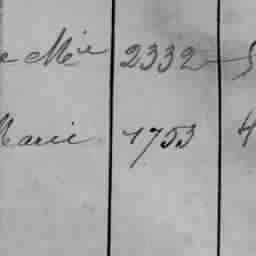 e Mie 2332 5
Marie 1753 4